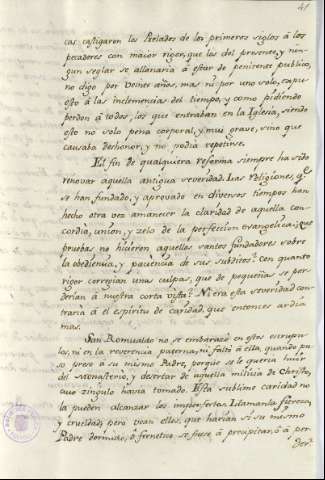 41
cas castigaron los Prelados de los primeros siglos á los
pecadores con maior rigor, que los del presente, y nin-
gun seglar se allanaria á estar de penitente publico,
no digo por veinte años, mas ni por uno solo, expu-
esto á las inclemencias del tiempo, y como pidiendo
perdon á todos, los que entraban en la Iglesia, siendo
esto no solo pena corporal, y mui grave, sino que
causaba deshonor, y no podia repetirse.
El fin de qualquiera reforma siempre ha sido
renovar aquella antigua severidad. Las religiones, q.e
se han fundado, y aprovado en diversos tiempos han
hecho otra vez amanecer la claridad de aquella con-
cordia, union, y zelo de la perfeccion evangelica: que
pruebas no hicieron aquellos santos fundadores sobre
la obediencia, y paciencia de sus subditos? Con quanto
rigor corregian unas culpas, que de pequeñas se per-
derian á nuestra corta vista? Ni era esta severidad con-
traria á el espiritu de caridad, que entonces ardia
mas.
San Romualdo no se embarazó en estos escrupu-
los, ni en la reverencia paterna, ni faltó á ella, quando pu-
so preso á su mismo Padre, porque se le queria huir
del monasterio, y desertar de aquella milicia de Christo,
cuio zingulo havia tomado. Esta sublime caridad no
la pueden alcanzar los imperfectos. Llamanla fiereza,
y crueldad; pero vean ellos, que harian si su mismo
Padre dormido, ó frenetico se fuese á precipitar, ó á per-
der